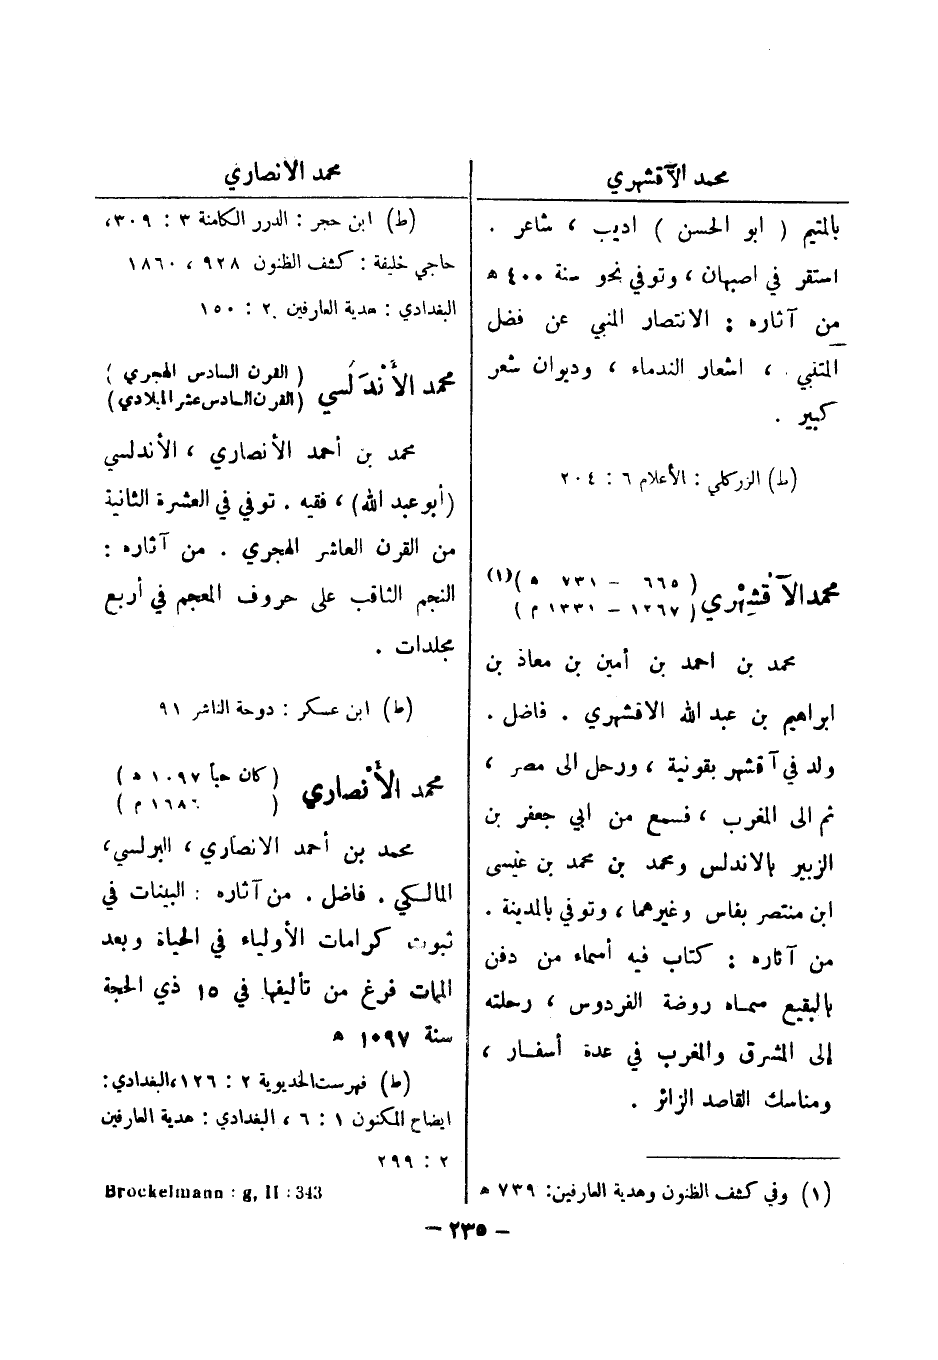 محمد الآقشهري
بالمتيم ( ابو الحسن ) اديب ، شاعر .
استقر في اصبهان ، وتوفي نحو سنة ٤٠٠ ه
من آثاره : الانتصار المنبي عن فضل
المتنبي ، اشعار الندماء ، وديوان شعر
كبير .
(ط) الزركلي : الأعلام ٦ : ٢٠٤
محمد الآقشهري ( ٦٦٥ – ٧٣١ ه )(١)
( ١٢٦٧ – ١٣٣١ م )
محمد بن احمد بن أمين بن معاذ بن
ابراهيم بن عبد الله الاقشهري . فاضل .
ولد في آقشهر بقونية ، ورحل الى مصر ،
ثم الى المغرب ، فسمع من ابي جعفر بن
الزبير بالاندلس ومحمد بن محمد بن عيسى
ابن منتصر بفاس وغيرهما ، وتوفي بالمدينة .
من آثاره : كتاب فيه أسماء من دفن
بالبقيع سماه روضة الفردوس ، رحلته
إلى المشرق والمغرب في عدة أسفار ،
ومناسك القاصد الزائر .
(١) وفي كشف الظنون وهدية العارفين: ٧٣٩ ه
محمد الأنصاري
(ط) ابن حجر : الدرر الكامنة ٣ : ٣٠٩،
حاجي خليفة : كشف الظنون ٩٢٨ ، ١٨٦٠
البغدادي : هدية العارفين ٢ : ١٥٠
محمد الأَنْدَلُسي ( القرن السادس الهجري )
(القرن السادس عشر الميلادي)
محمد بن أحمد الأنصاري ، الأندلسي
(أبو عبد الله) ، فقيه . توفي في العشرة الثانية
من القرن العاشر الهجري . من آثاره :
النجم الثاقب على حروف المعجم في أربع
مجلدات .
(ط) ابن عسكر : دوحة الناشر ٩١
محمد الأَنْصاري ( كان حياً ١٠٩٧ ه )
( ١٦٨٦ م )
محمد بن أحمد الانصاري ، البرلسي،
المالكي . فاضل . من آثاره : البينات في
ثبوت كرامات الأولياء في الحياة وبعد
الممات فرغ من تأليفها في ١٥ ذي الحجة
سنة ١٠٩٧ ه
(ط) فهرست الخديوية ٢ : ١٢٦، البغدادي :
ايضاح المكنون ١ : ٦ ، البغدادي : هدية العارفين
٢ : ٢٩٩
Brockelmann : g, II : 343
– ٢٣٥ –